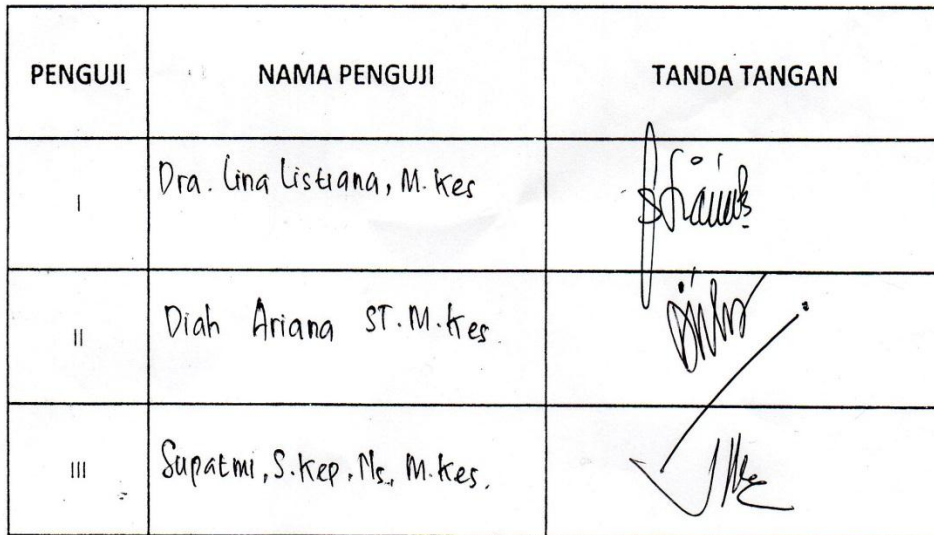 PENGUJI NAMA PENGUJI TANDA TANGAN
I Dra. Lina Listiana, M. Kes
II Diah Ariana ST. M. Kes
III Supatmi, S. Kep, Ns, M. Kes.